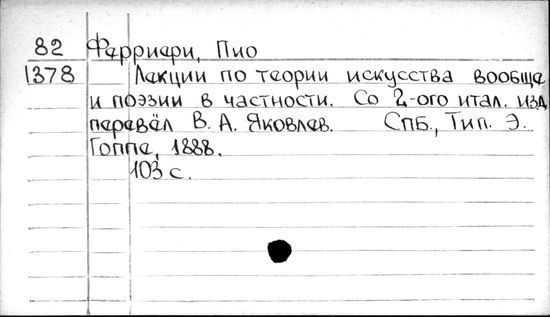 82 Ферриери, Пио
1378 Лекции по теории искусства вообще
и поэзии в частности. Со 2-ого итал. изд.
перевёл В. А. Яковлев. СПБ., Тип. Э.
Гоппе, 1888.
103 с.